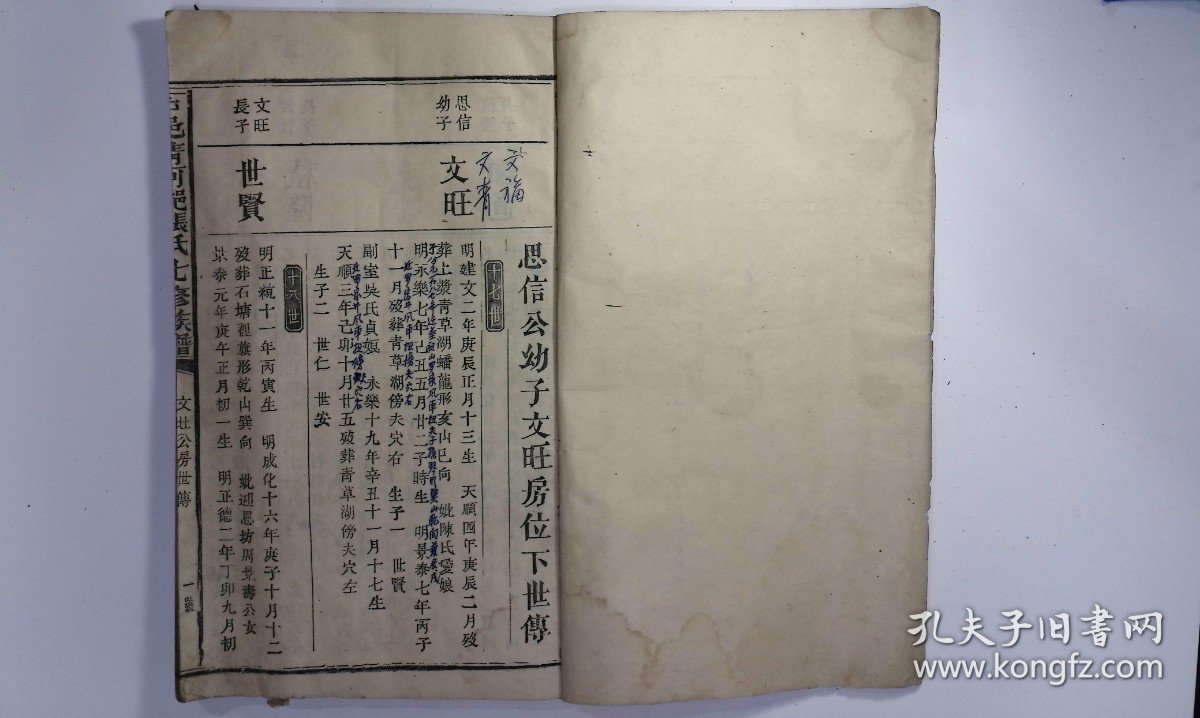 思信公幼子文旺房位下世傳
思信
幼子
文旺
文福
文青
十七世
明建文二年庚辰正月十三生 天順四年庚辰二月歿
葬上漿青草湖蟠龍形亥山巳向 妣陳氏愛娘
明永樂七年己丑五月廿二子時生 明景泰七年丙子
十一月歿葬青草湖傍夫穴右 生子一 世賢
副室吳氏貞娘 永樂十九年辛丑十一月十七生
天順三年己卯十月廿五歿葬青草湖傍夫穴左
生子二 世仁 世安
文旺
長子
世賢
十八世
明正統十一年丙寅生 明成化十六年庚子十月十二
歿葬石塘裡旗形乾山巽向 妣迎恩坊周景壽公女
景泰元年庚午正月初一生 明正德二年丁卯九月初
邑清河張氏七修族譜
文世公房世傳
一號
孔夫子旧书网
www.kongfz.com